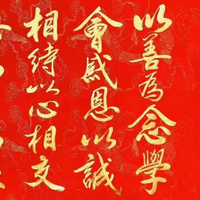 以善為念學
會感恩以誠
相待以心相交